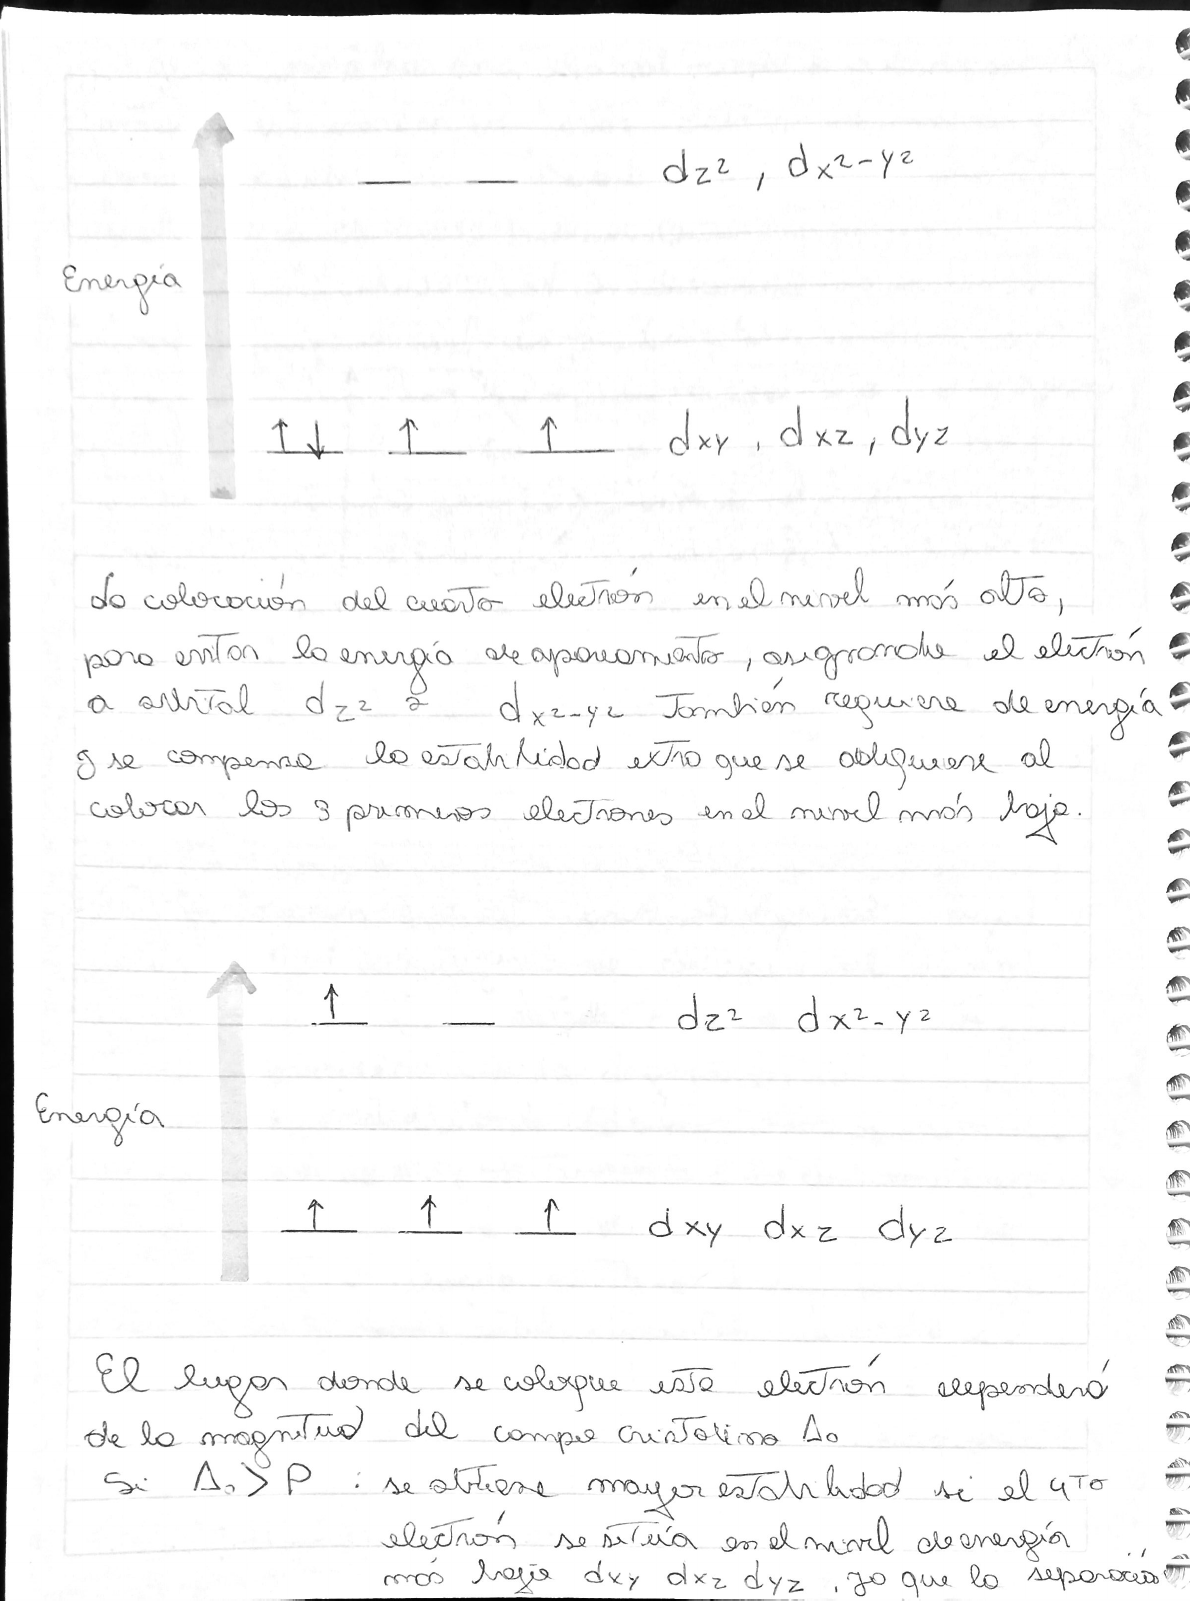 dz², dx²-y²
Energía
↑↓ ↑ ↑ dxy, dxz, dyz
La colocación del cuarto electrón en el nivel más alto,
para evitar la energía de apareamiento, asignandole el electrón
a orbital dz² o dx²-y² También requiere de energía
y se compensa la estabilidad extra que se adquiere al
colocar los 3 primeros electrones en el nivel más bajo.
↑ dz² dx²-y²
Energía
↑ ↑ ↑ dxy dxz dyz
El lugar donde se coloque este electrón dependerá
de la magnitud del campo cristalino Δo
Si Δo > P : se obtiene mayor estabilidad si el 4to
electrón se sitúa en el nivel de energía
más bajo dxy dxz dyz, ya que la separación